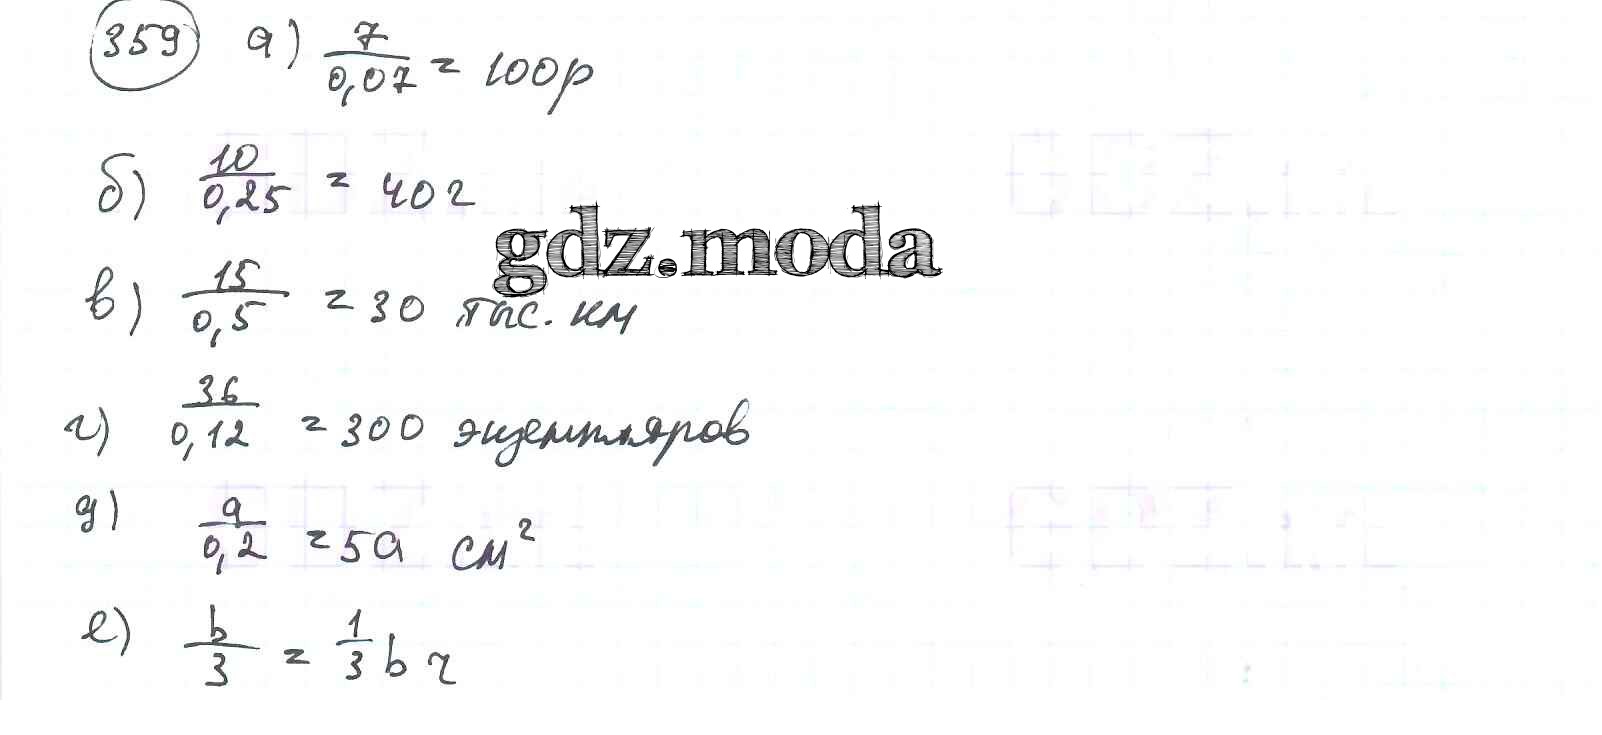 359 а) 7/0,07 = 100р
б) 10/0,25 = 40г
gdz.moda
в) 15/0,5 = 30 тыс. км
г) 36/0,12 = 300 экземпляров
д) a/0,2 = 5a см²
е) b/3 = 1/3 b ч